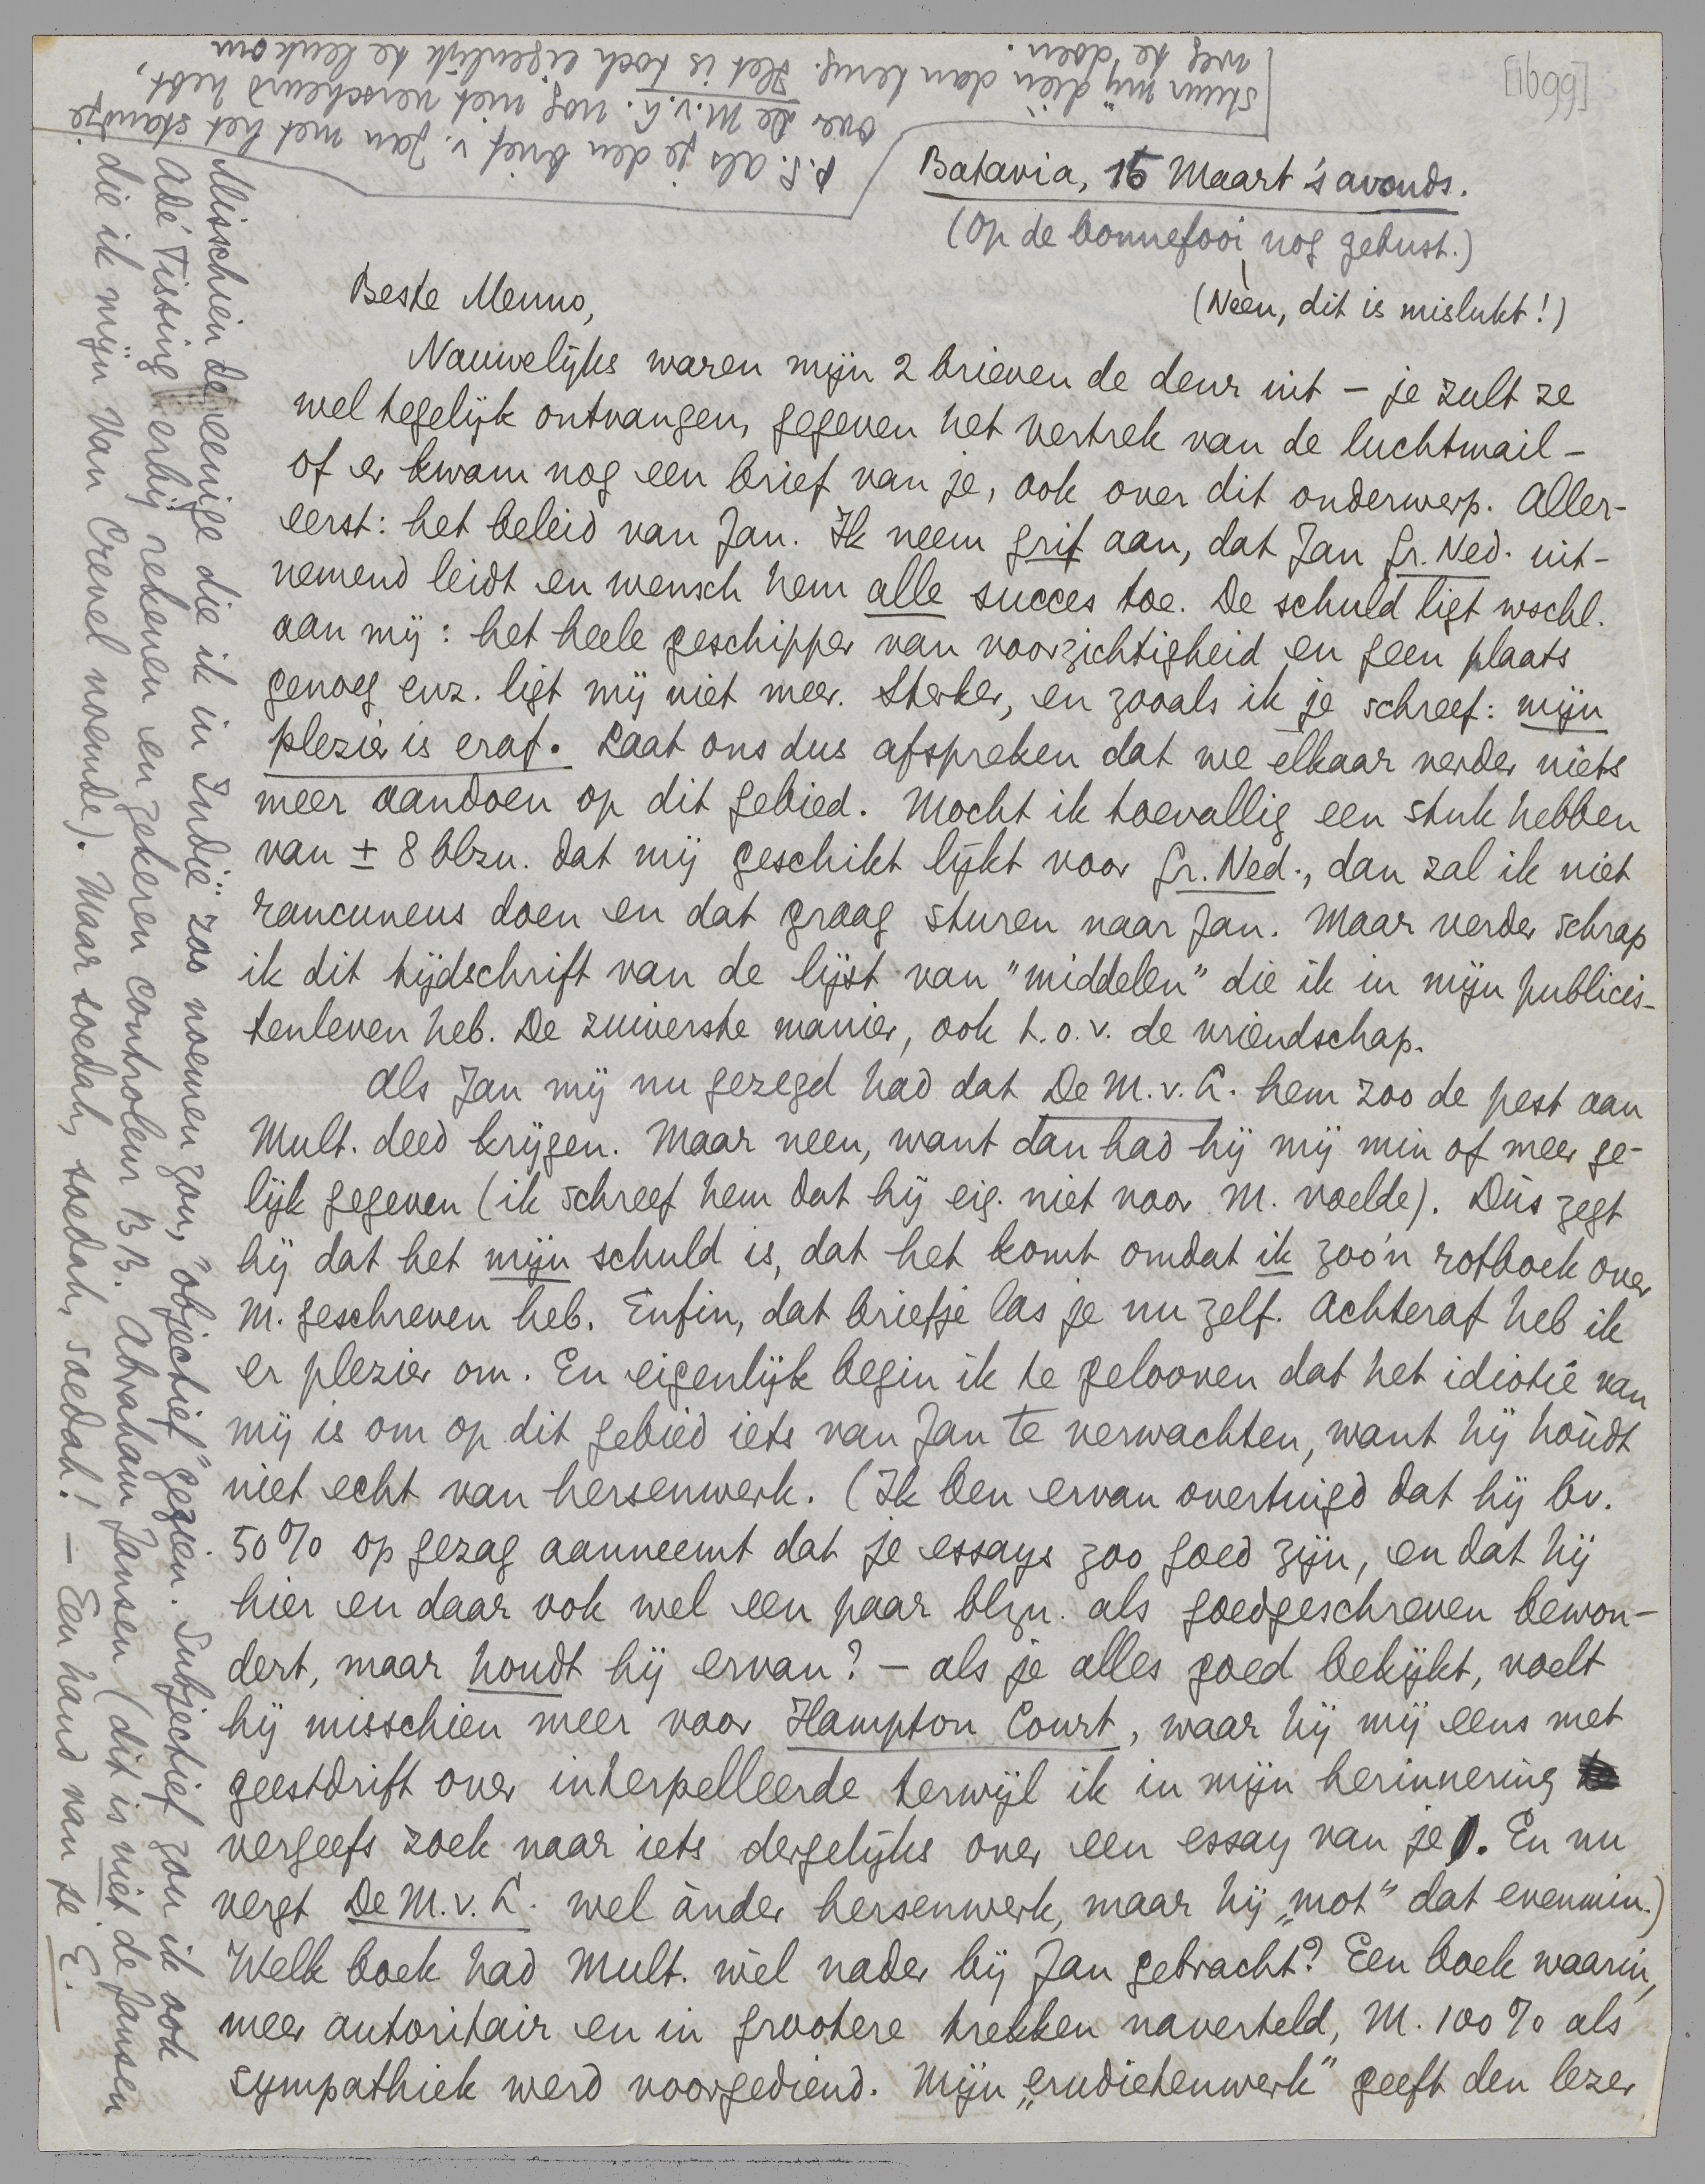 [1699]
Batavia, 15 Maart 's avonds.
(Op de bonnefooi nog gebust.)
(Neèn, dit is mislukt!)
Beste Menno,
Nauwelijks waren mijn 2 brieven de deur uit – je zult ze
wel tegelijk ontvangen, gegeven het vertrek van de luchtmail –
of er kwam nog een brief van je, ook over dit onderwerp. Aller-
eerst: het beleid van Jan. Ik neem grif aan, dat Jan Gr. Ned. uit-
nemend leidt en wensch hem alle succes toe. De schuld ligt wschl.
aan mij: het heele geschipper van voorzichtigheid en geen plaats
genoeg enz. ligt mij niet meer. Sterker, en zooals ik je schreef: mijn
plezier is eraf. Laat ons dus afspreken dat we elkaar verder niets
meer aandoen op dit gebied. Mocht ik toevallig een stuk hebben
van ± 8 blzn. dat mij geschikt lijkt voor Gr. Ned., dan zal ik niet
rancuneus doen en dat graag sturen naar Jan. Maar verder schrap
ik dit tijdschrift van de lijst van "middelen" die ik in mijn publicis-
tenleven heb. De zuiverste manier, ook t.o.v. de vriendschap.
Als Jan mij nu gezegd had dat De M.v.L. hem zoo de pest aan
Mult. deed krijgen. Maar neen, want dan had hij mij min of meer ge-
lijk gegeven (ik schreef hem dat hij eig. niet voor M. voelde). Dùs zegt
hij dat het mijn schuld is, dat het komt omdat ik zoo'n rotboek over
M. geschreven heb. Enfin, dat briefje las je nu zelf. Achteraf heb ik
er plezier om. En eigenlijk begin ik te gelooven dat het idiotie van
mij is om op dit gebied iets van Jan te verwachten, want hij hòudt
niet echt van hersenwerk. (Ik ben ervan overtuigd dat hij bv.
50% op gezag aanneemt dat je essays zoo goed zijn, en dat hij
hier en daar ook wel een paar blzn. als goedgeschreven bewon-
dert, maar houdt hij ervan? – als je alles goed bekijkt, voelt
hij misschien meer voor Hampton Court, waar hij mij eens met
geestdrift over interpelleerde terwijl ik in mijn herinnering
vergeefs zoek naar iets dergelijks over een essay van je. En nu
vergt De M.v.L. wel ànder hersenwerk, maar hij „mot" dat evenmin.)
Welk boek had Mult. wèl nader bij Jan gebracht? Een boek waarin,
meer autoritair en in grootere trekken naverteld, M. 100% als
sympathiek werd voorgediend. Mijn „erudietenwerk" geeft den lezer
Misschien de eenige die ik in Indië zoo noemen zou, "objectief" gezien. Subjectief zou ik ook
Adé Tissing erbij rekenen en zekeren controleur BB. Abraham Jansen (dit is niet de Jansen
die ik mijn Van Crevel noemde). Maar soedah, soedah, soedah! – Een hand van je E.
P.S. Als je den brief v. Jan met het standje
over De M.v.L. nog niet verscheurd hebt,
stuur mij dien dan terug. Het is toch eigenlijk te leuk om
weg te doen.